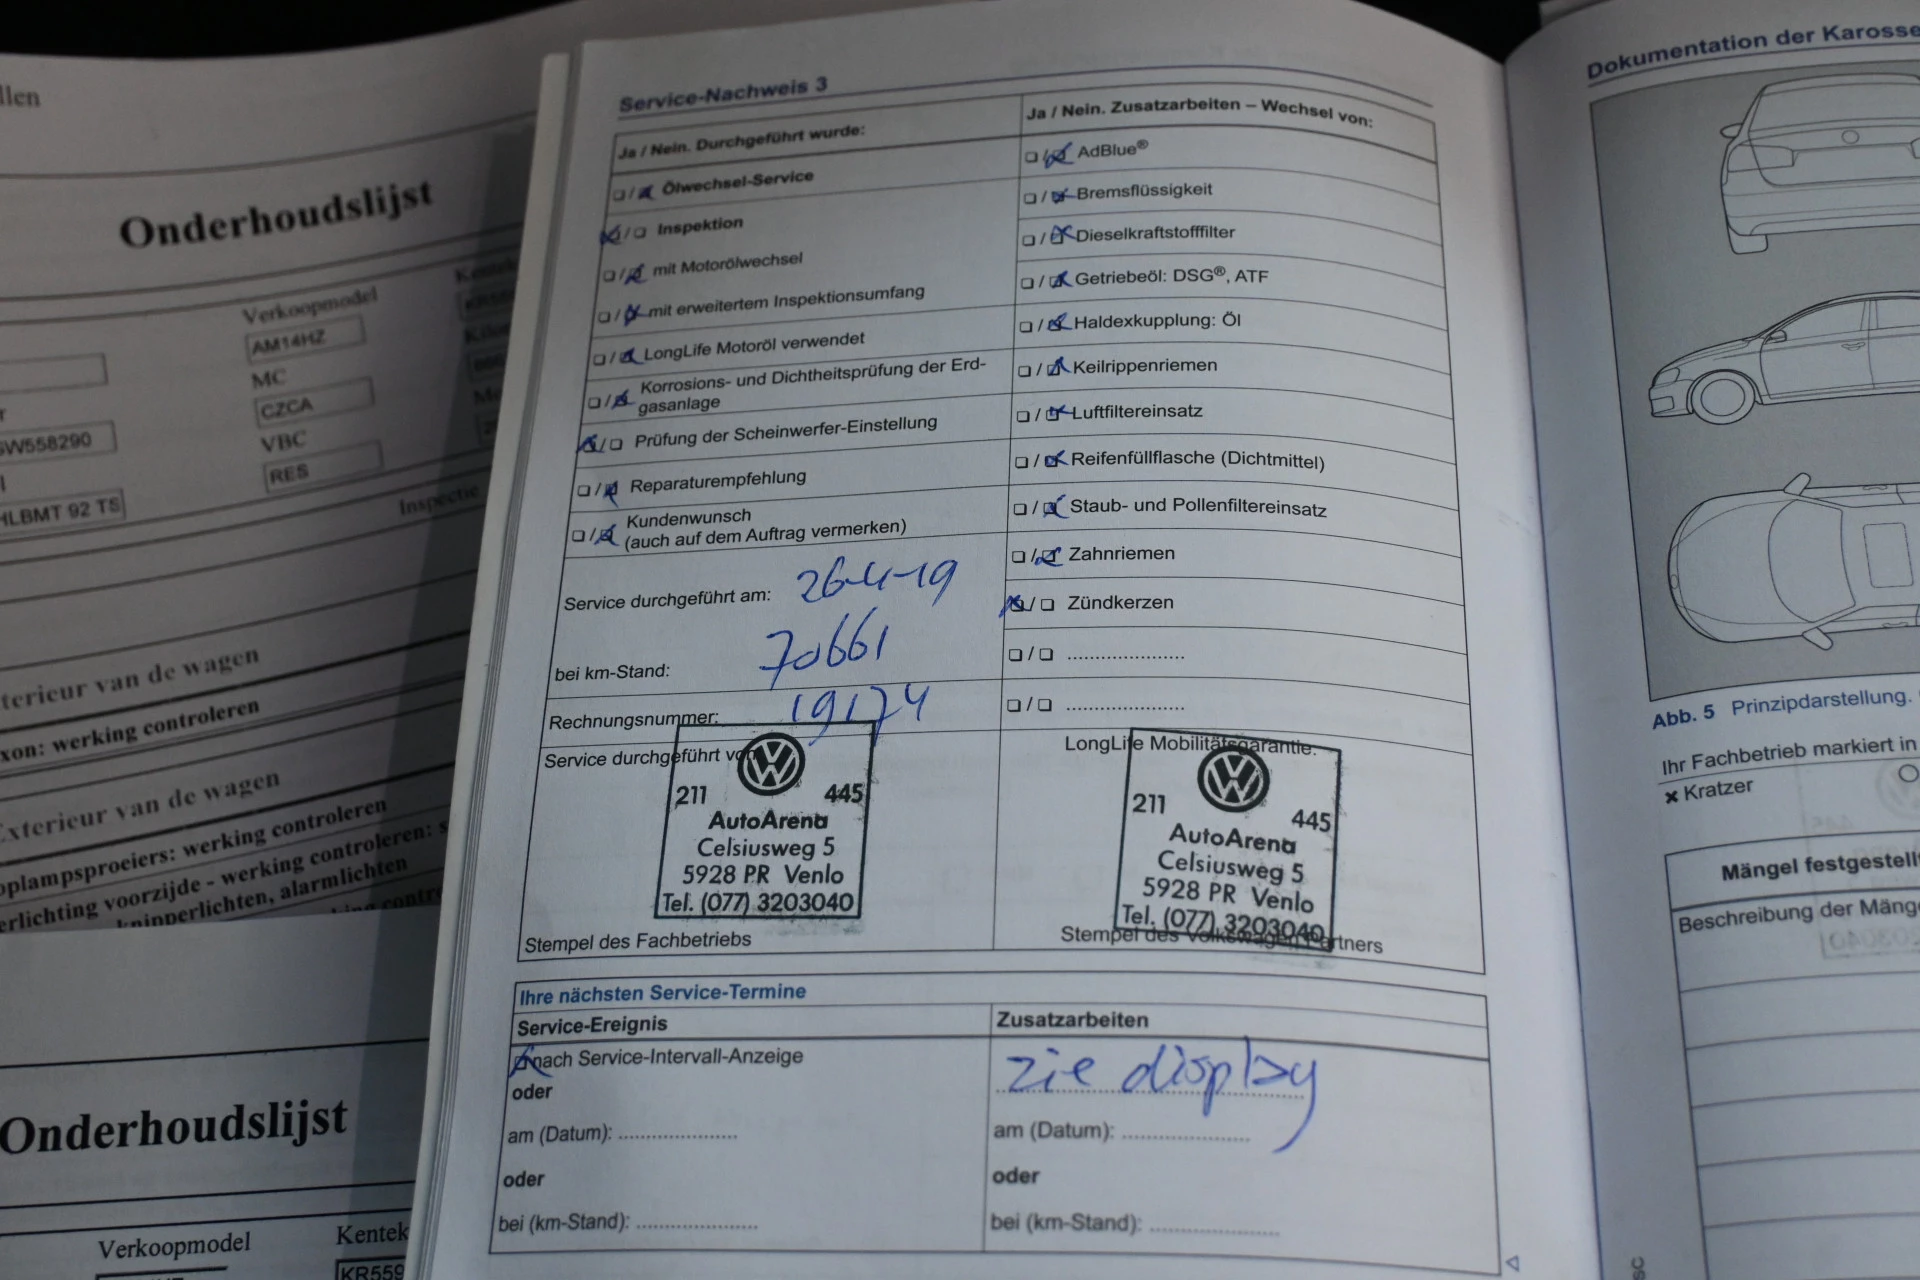 llen
Onderhoudslijst
Verkoopmodel
AM14HZ
MC
CZCA
VBC
RES
SW558290
HLBMT 92 TS
Inspectie
terieur van de wagen
xon: werking controleren
Exterieur van de wagen
oplampsproeiers: werking controleren
erlichting voorzijde - werking controleren: s
knipperlichten, alarmlichten
Onderhoudslijst
Verkoopmodel
Kentek
KR559
Service-Nachweis 3
Ja / Nein. Durchgeführt wurde:
Ölwechsel-Service
Inspektion
mit Motorölwechsel
mit erweitertem Inspektionsumfang
LongLife Motoröl verwendet
Korrosions- und Dichtheitsprüfung der Erd-
gasanlage
Prüfung der Scheinwerfer-Einstellung
Reparaturempfehlung
Kundenwunsch
(auch auf dem Auftrag vermerken)
Service durchgeführt am: 26-4-19
bei km-Stand: 70661
Rechnungsnummer: 19174
Service durchgeführt von
211 445
AutoArena
Celsiusweg 5
5928 PR Venlo
Tel. (077) 3203040
Stempel des Fachbetriebs
Ja / Nein. Zusatzarbeiten – Wechsel von:
AdBlue®
Bremsflüssigkeit
Dieselkraftstofffilter
Getriebeöl: DSG®, ATF
Haldexkupplung: Öl
Keilrippenriemen
Luftfiltereinsatz
Reifenfüllflasche (Dichtmittel)
Staub- und Pollenfiltereinsatz
Zahnriemen
Zündkerzen
LongLife Mobilitätsgarantie:
211 445
AutoArena
Celsiusweg 5
5928 PR Venlo
Tel. (077) 3203040
Stempel des Volkswagen Partners
Ihre nächsten Service-Termine
Service-Ereignis
nach Service-Intervall-Anzeige
oder
am (Datum): ....................
oder
bei (km-Stand): ....................
Zusatzarbeiten
zie display
am (Datum): ....................
oder
bei (km-Stand): ....................
Dokumentation der Karosse
Abb. 5 Prinzipdarstellung.
Ihr Fachbetrieb markiert in
× Kratzer
Mängel festgestellt
Beschreibung der Mänge